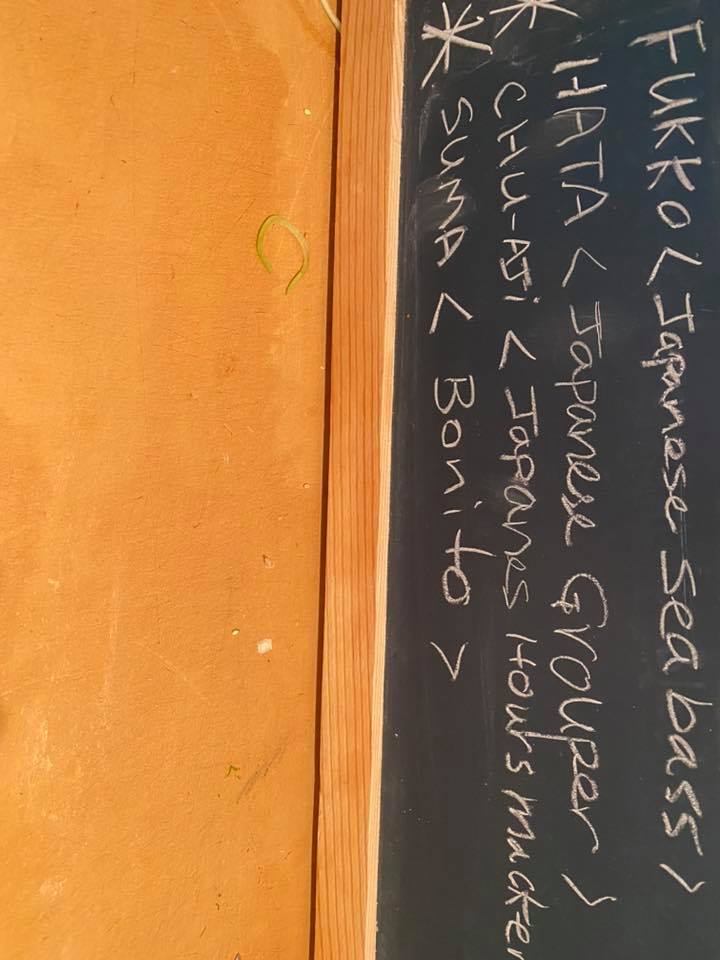 FUKKO < Japanese sea bass >
* HATA < Japanese Grouper >
CHU-AJi < Japanes Hours macker
* SUMA < Bonito >